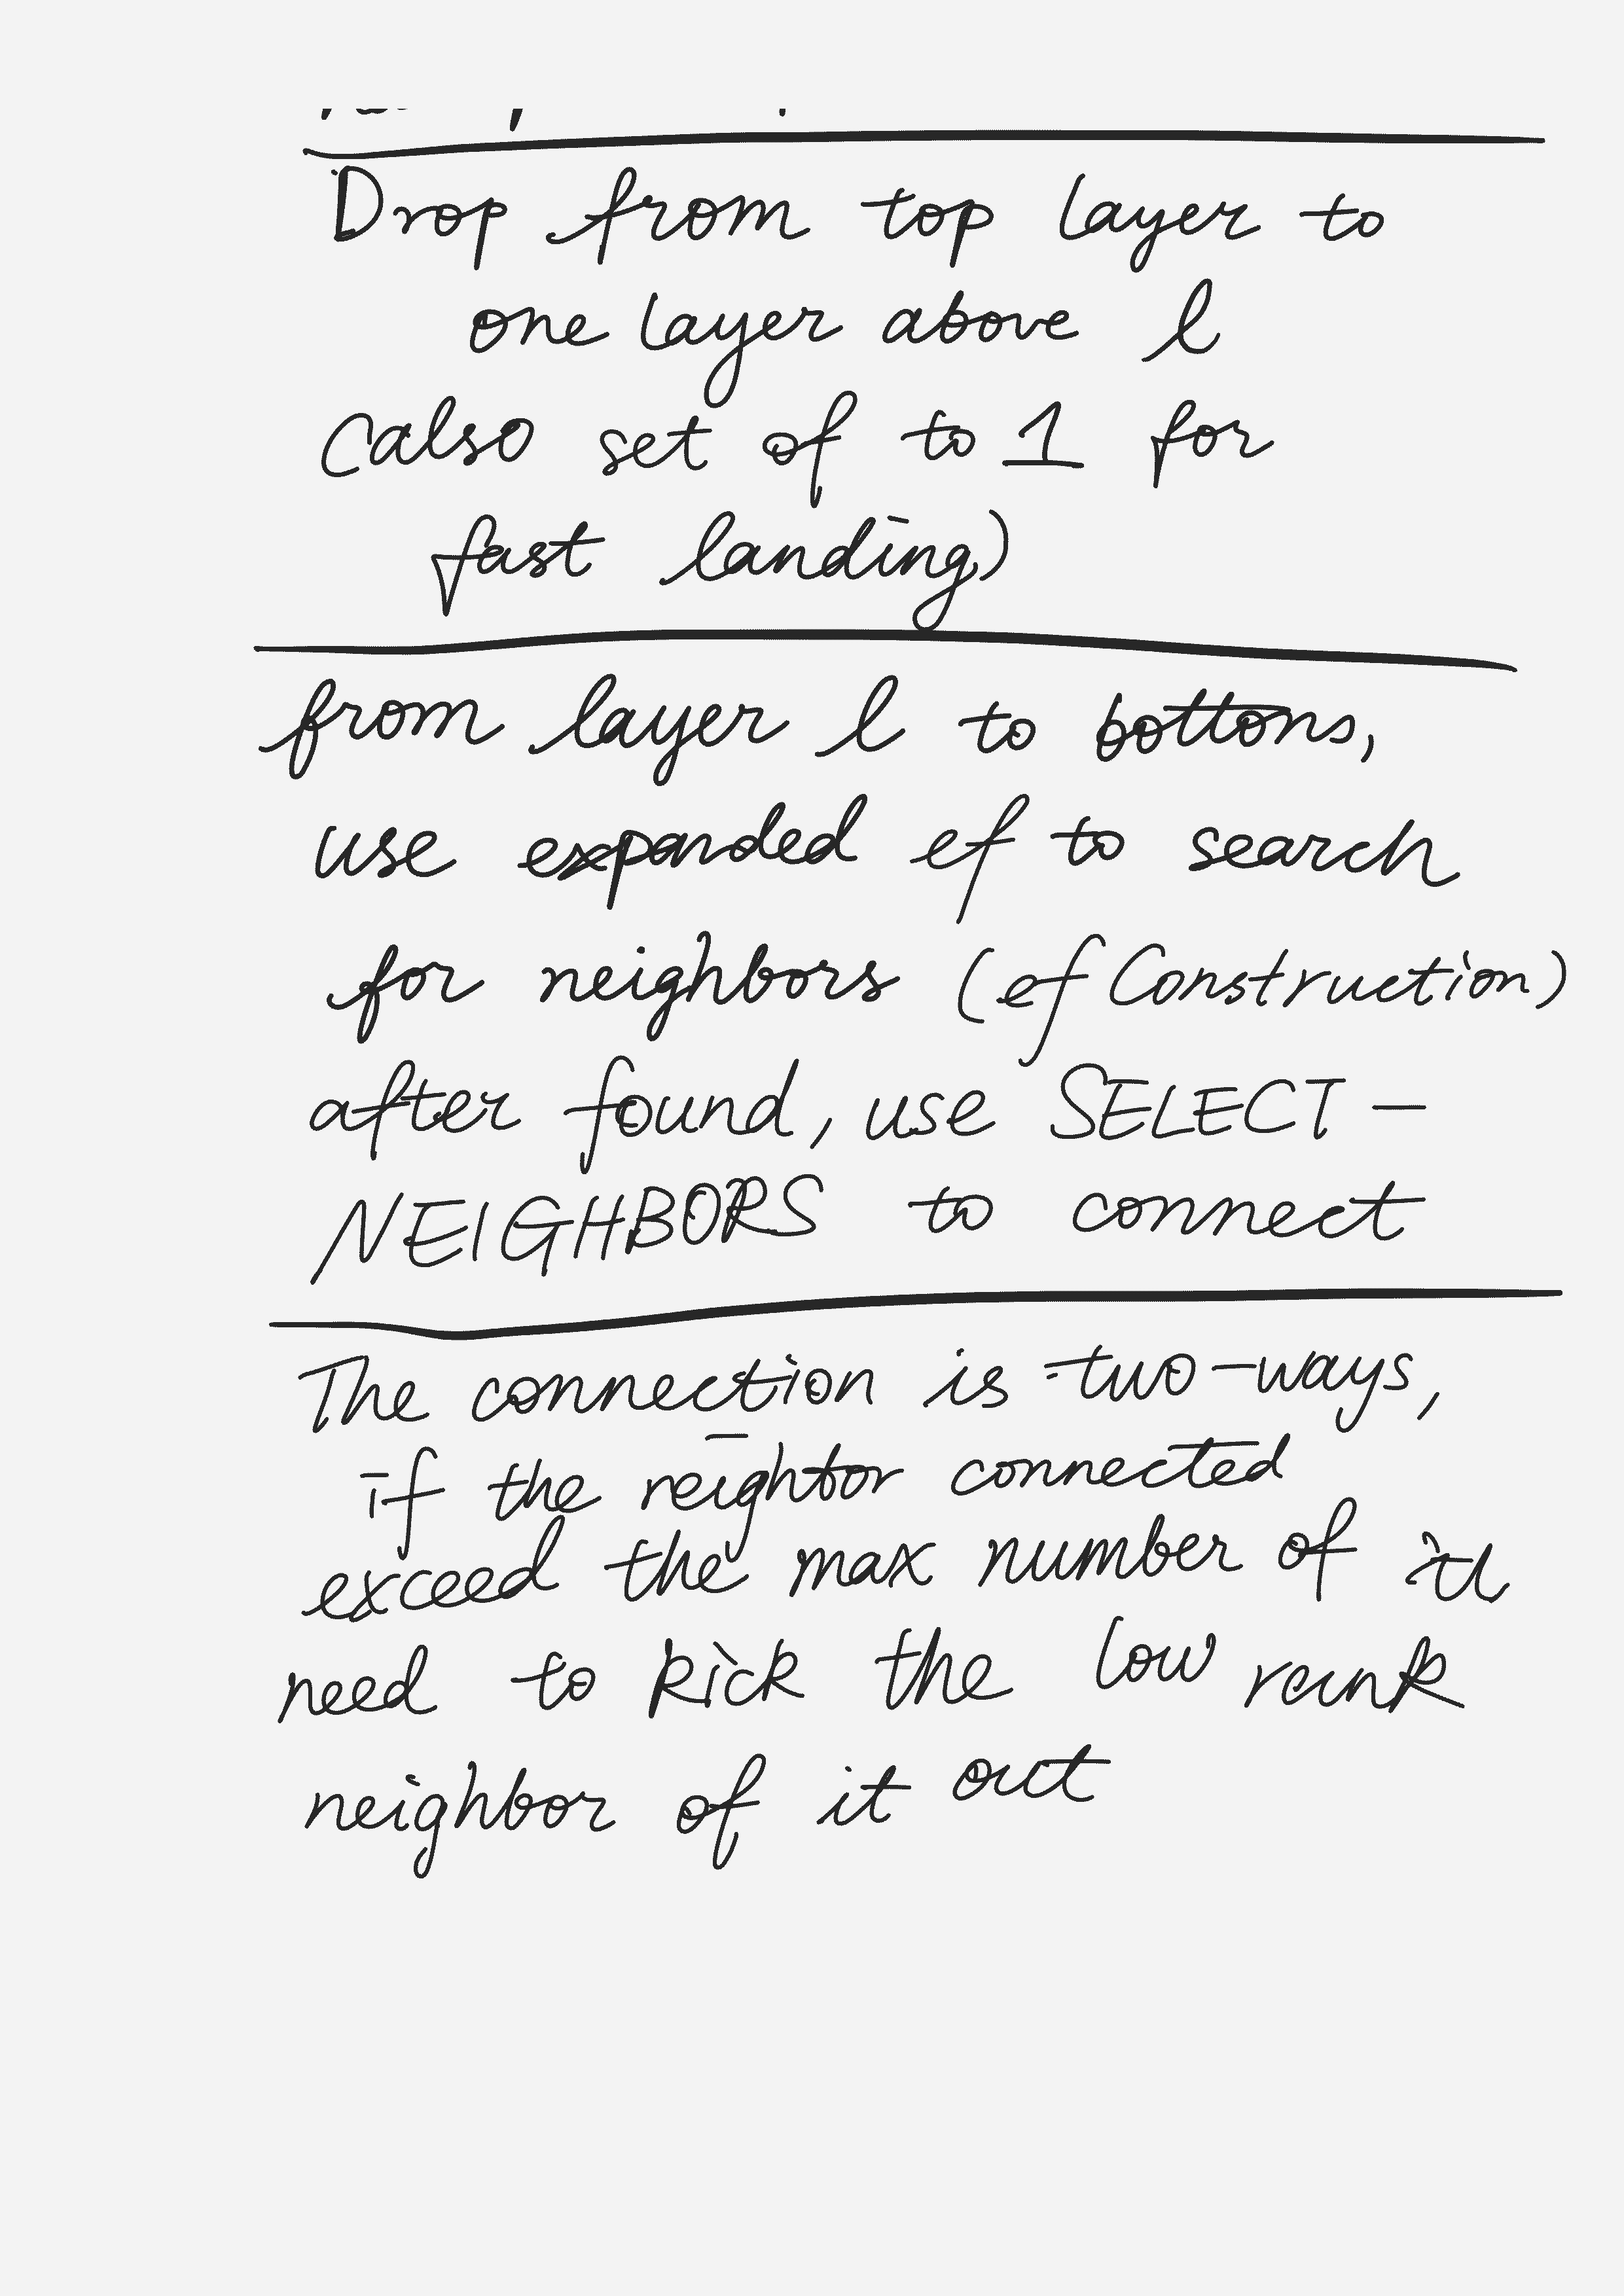 Drop from top layer to
one layer above l
(also set ef to 1 for
fast landing)
from layer l to bottoms,
use expanded ef to search
for neighbors (ef Construction)
after found, use SELECT-
NEIGHBORS to connect
The connection is two-ways,
if the neightor connected
exceed the max number of it
need to kick the low rank
neighbor of it out